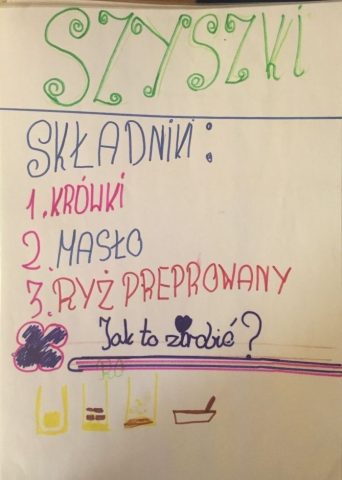 SZYSZKI
SKŁADNIKI:
1. KRÓWKI
2. MASŁO
3. RYŻ PREPROWANY
Jak to zrobić?